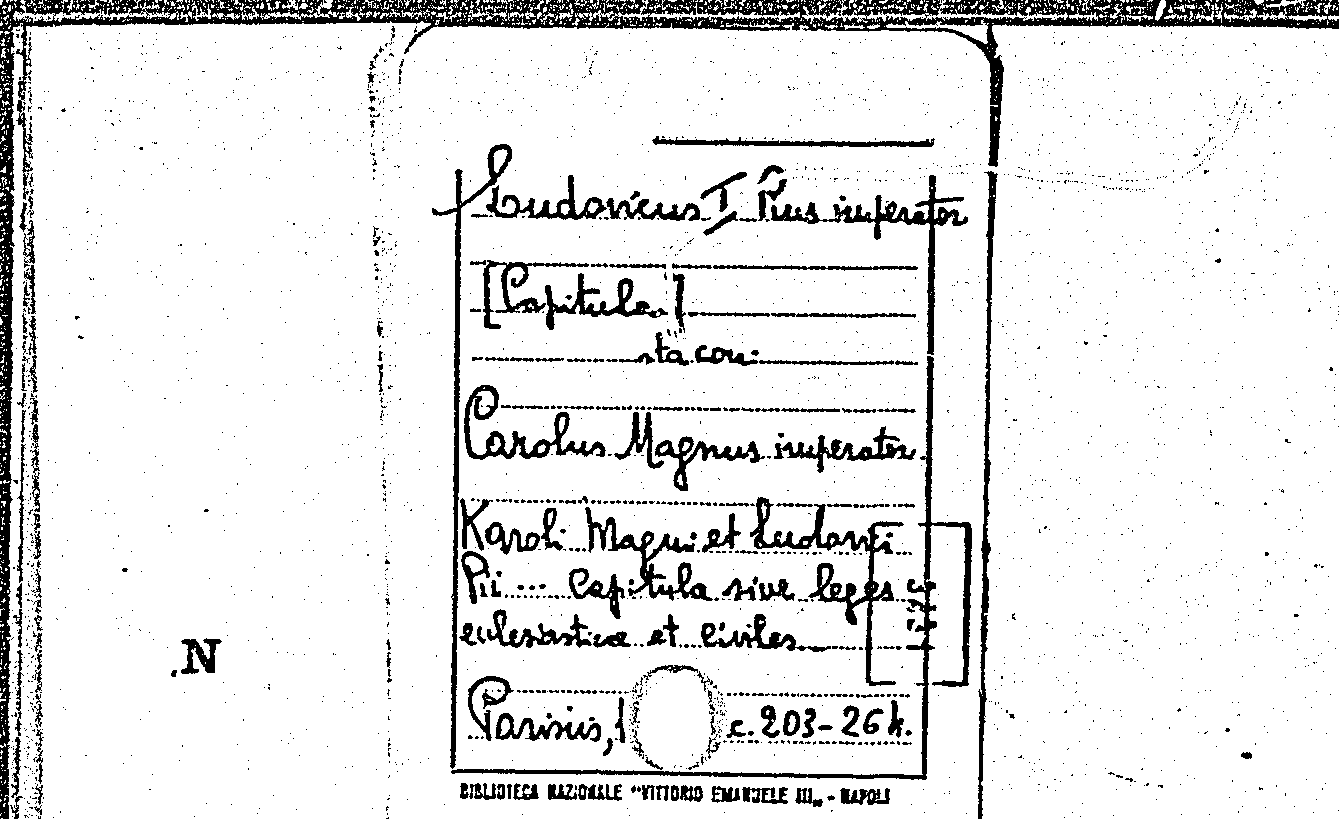 Ludovicus I Pius imperator
[Capitula]
sta con:
Carolus Magnus imperator.
Karoli Magni et Ludovici
Pii ... Capitula sive leges
eclesiasticæ et civiles
.N
Parisiis, 1 c. 203-264.
BIBLIOTECA NAZIONALE "VITTORIO EMANUELE III" - NAPOLI